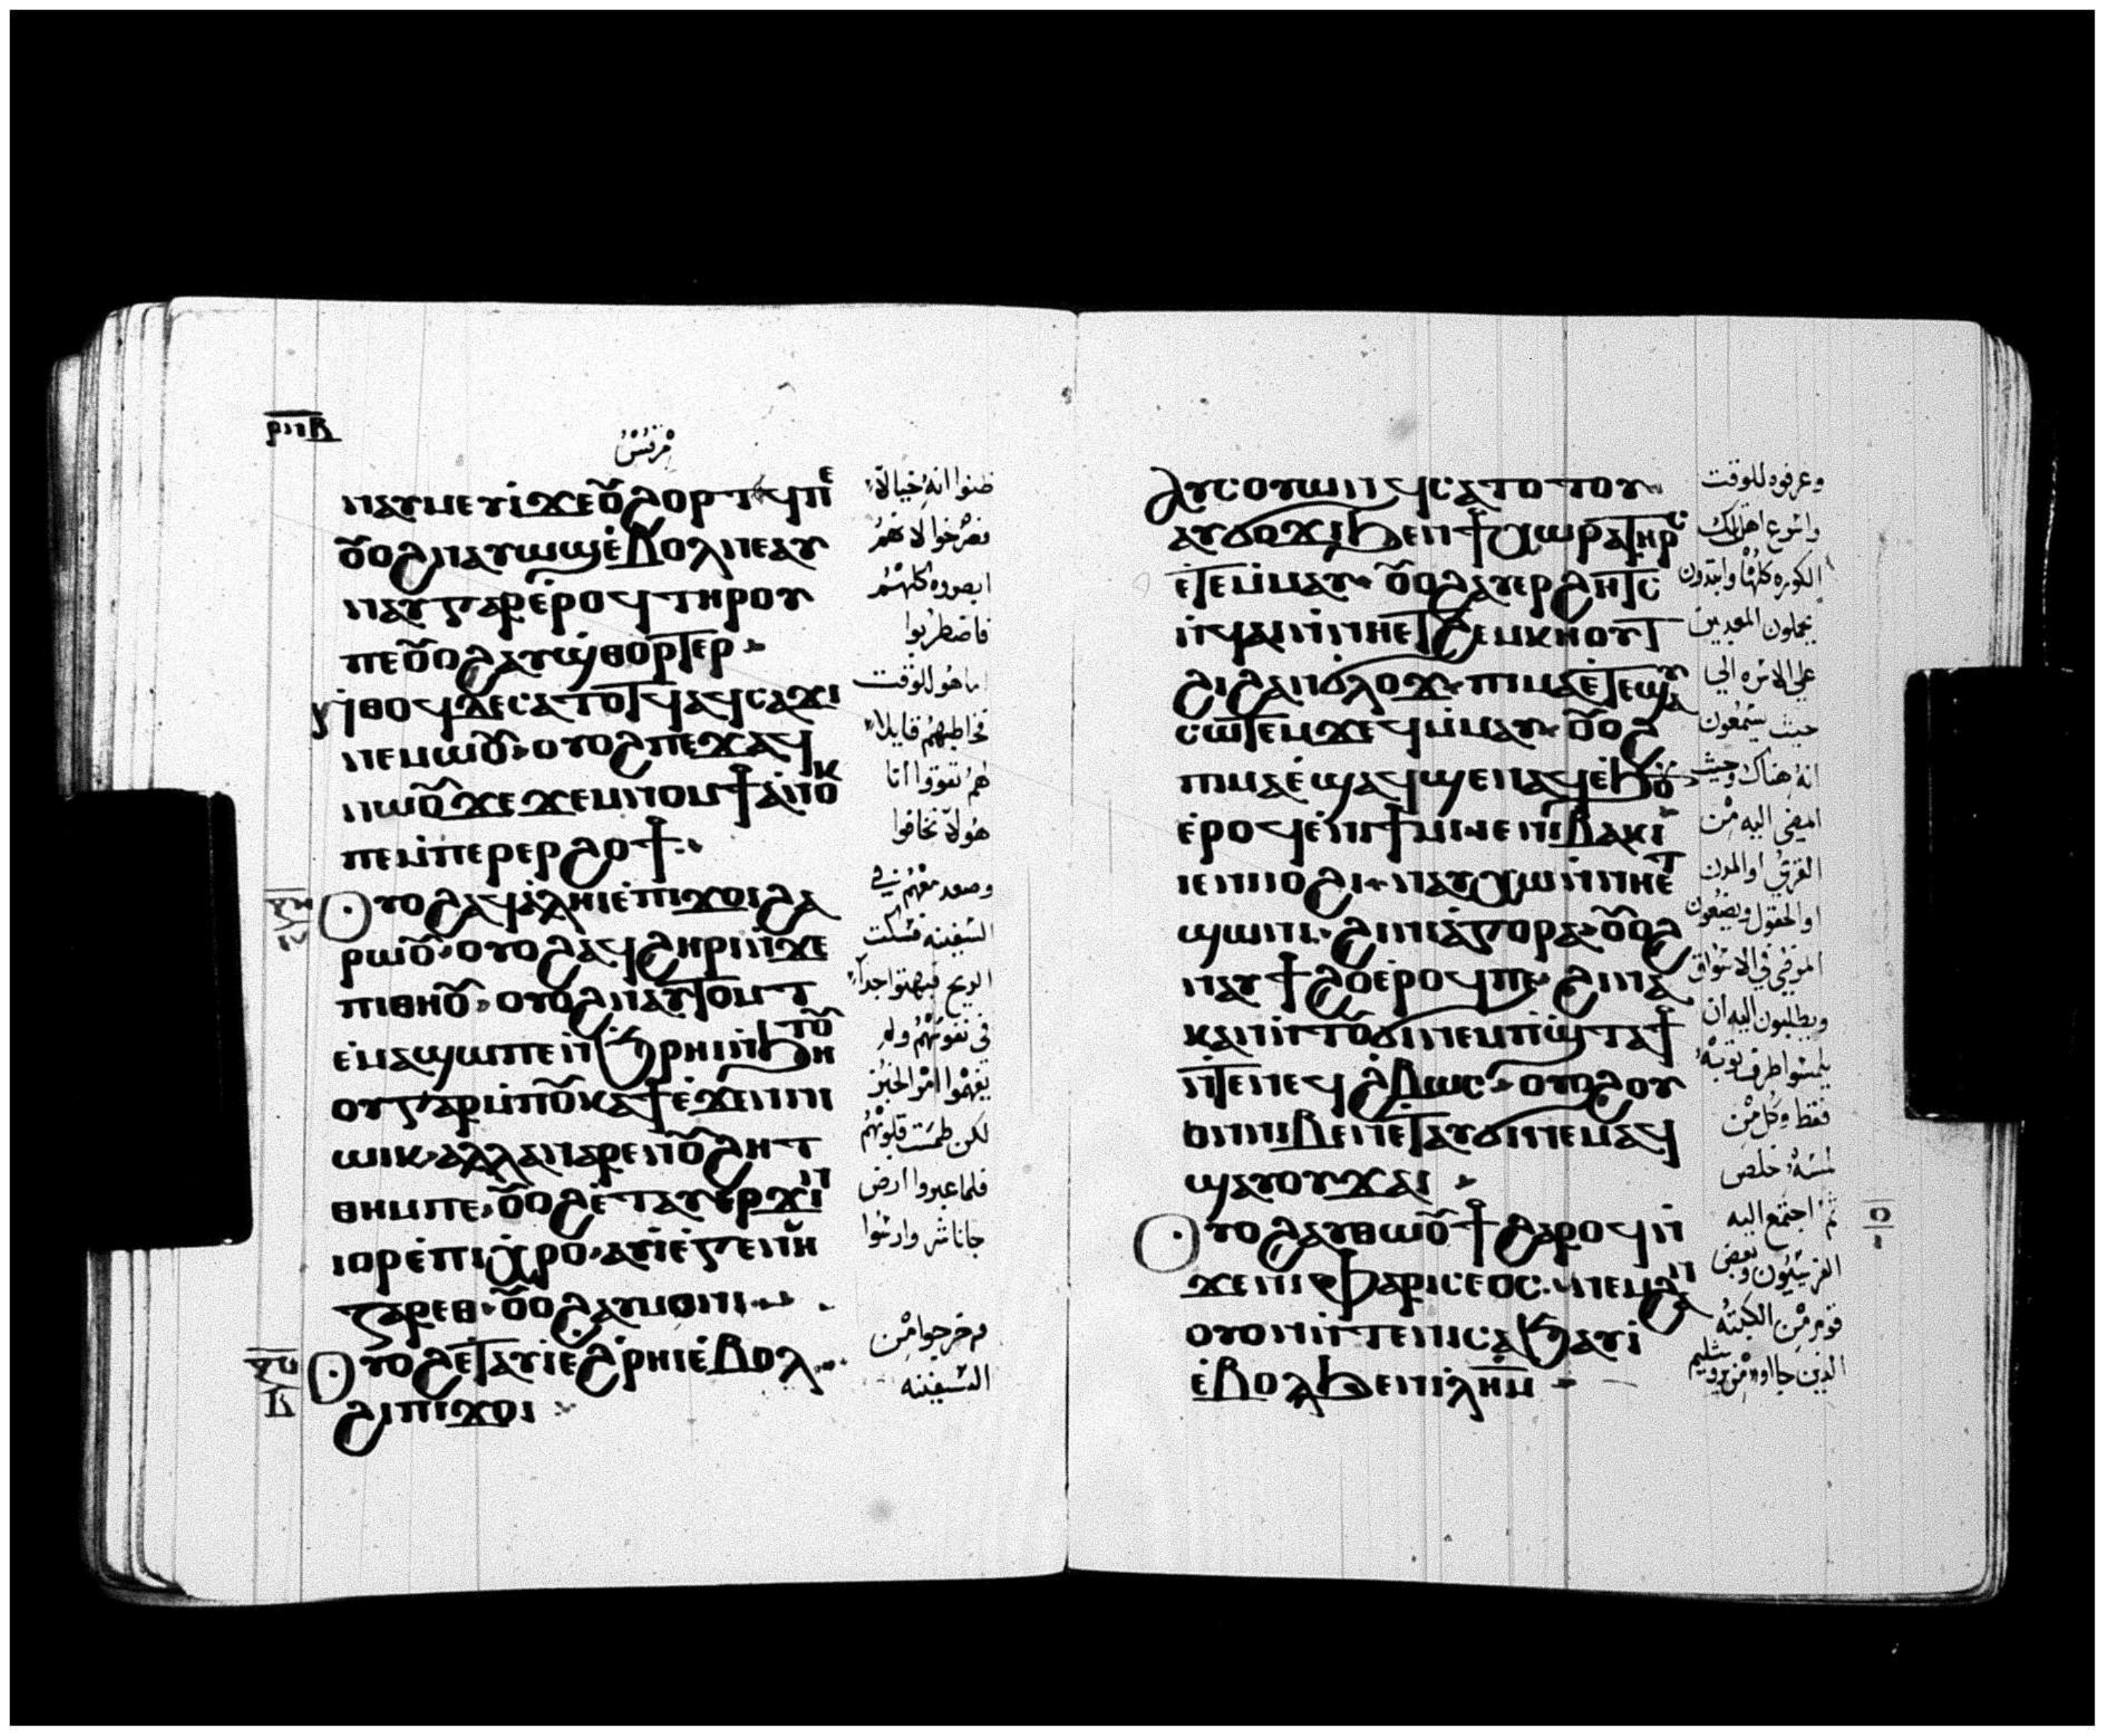 ⲣⲛⲃ
مرقس
ⲛⲁⲩⲙⲉⲩⲓ̀ϫⲉⲟ̅ϩⲟⲣⲧϥⲡⲉ
ⲟ̅ⲟϩⲛⲁⲩⲱϣⲉ̀ⲃⲟⲗⲡⲉⲁⲩ
ⲛⲁⲩⲅⲁⲣⲉ̀ⲣⲟϥⲧⲏⲣⲟⲩ
ⲡⲉⲟ̅ⲟϩⲁⲩϣ̀ⲑⲟⲣⲧⲉⲣ
ⲛ̀ⲑⲟϥⲇⲉⲥⲁⲧⲟⲧϥⲁϥⲥⲁϫⲓ
ⲛⲉⲙⲱⲟ̅ⲟⲩⲟϩⲡⲉϫⲁϥ
ⲛⲱⲟ̅ϫⲉϫⲉⲙⲛⲟⲙϯⲁ̀ⲛⲟⲕ
ⲡⲉⲙ̀ⲡⲉⲣⲉⲣϩⲟϯ
ⲟⲩⲟϩⲁϥⲁ̀ⲗⲏⲓⲉ̀ⲡⲓϫⲟⲓϩⲁ
ⲣⲱⲟ̅ⲟⲩⲟϩⲁϥϩⲏⲣⲓⲛ̀ϫⲉ
ⲡⲓⲑⲏⲟ̅ⲟⲩⲟϩⲛⲁⲩⲧⲟⲙⲧ
ⲉ̀ⲙⲁϣⲱⲡⲉⲛ̀ϧⲣⲏⲓⲛ̀ϧⲏⲧⲟ̅
ⲟⲩⲅⲁⲣⲙ̀ⲡⲟ̅ⲕⲁϯⲉ̀ϫⲉⲛⲛⲓ
ⲱⲓⲕⲁⲗⲗⲁⲛⲁⲣⲉⲡⲟ̅ϩⲏⲧ
ⲑⲏⲙⲡⲉⲟ̅ⲟϩⲉ̀ⲧⲁⲩⲉⲣϫⲓⲛ
ⲓⲟⲣⲉ̀ⲡⲓⲭⲣⲟⲁⲩⲓ̀ⲉ̀ⲅⲉⲛⲏ
ⲍⲁⲣⲉⲑⲟ̅ⲟϩⲁⲩⲙⲟⲛⲓ
ⲟⲩⲟϩⲉ̀ⲧⲁⲩⲓ̀ⲉ̀ϩ̀ⲣⲏⲓⲉ̀ⲃⲟⲗ
ϩⲓⲡⲓϫⲟⲓ
ظنوا انه خيالاً
فصرخوا لانهم
ابصروه كلهم
فاضطربوا
اما هو للوقت
خاطبهم قايلا
لهم تقووا انا
هو لا تخافوا
وصعد معهم في
السفينه فسكت
الريح فبهتوا جداً
في نفوسهم ولم
يفهموا امر الخبز
لكن طمست قلوبهم
فلما عبروا ارض
جاناشر وارسوا
فخرجوا من
السفينه
ⲁⲩⲥⲟⲩⲱⲛϥⲥⲁⲧⲟⲧⲟⲩ
ⲁⲩϭⲟϫⲓϧⲉⲛϯⲭⲱⲣⲁⲧⲏⲣⲥ
ⲉ̀ⲧⲉⲙ̀ⲙⲁⲩⲟ̅ⲟϩⲁⲩⲉⲣϩⲏⲧⲥ
ⲛ̀ϥⲁⲓⲛ̀ⲛⲏⲉⲧϩⲉⲙⲕⲏⲟⲩⲧ
ϩⲓϩⲁⲛϭⲗⲟϫⲡⲓⲙⲁⲉ̀ⲧⲉϣⲁⲩ
ⲥⲱⲧⲉⲙϫⲉϥⲙ̀ⲙⲁⲩⲟ̅ⲟϩ
ⲡⲓⲙⲁⲉ̀ϣⲁϥϣⲉⲛⲁϥⲉ̀ϧⲟ̅
ⲉ̀ⲣⲟϥⲉ̀ⲛⲓϯⲙⲓⲓⲉⲛⲓⲃⲁⲕⲓ
ⲓⲉⲛⲓⲓⲟϩⲓⲛⲁⲩⲭⲱⲛ̀ⲛⲏⲉⲧ
ϣⲱⲛⲓϩⲓⲛⲓⲁ̀ⲅⲟⲣⲁⲟ̅ⲟϩ
ⲛⲁⲩϯϩⲟⲉ̀ⲣⲟϥⲡⲉϩⲓⲛⲁ
ⲕⲁⲛⲛ̀ⲧⲟ̅ϭⲓⲛⲉⲙⲡϣ̀ⲧⲁϯ
ⲛ̀ⲧⲉⲡⲉϥϩ̀ⲃⲱⲥⲟⲩⲟϩⲟⲩ
ⲟⲛⲛⲓⲃⲉⲛⲉⲧⲁⲩϭⲓⲛⲉⲙⲁϥ
ϣⲁⲩⲟⲩϫⲁⲓ
ⲟⲩⲟϩⲁⲩⲑⲱⲟ̅ϯϩⲁⲣⲟϥⲛ̀
ϫⲉⲛⲓⲫⲁⲣⲓⲥⲉⲟⲥⲛⲉⲙϩⲁⲛ
ⲟⲩⲟⲛⲛ̀ⲧⲉⲛⲓⲥⲁϧⲁⲩⲓ̀
ⲉ̀ⲃⲟⲗϧⲉⲛⲓ̀ⲗⲏⲙ
وعرفوه للوقت
واسرع اهل تلك
الكوره كلها وابتدون
يحملون المعدبين
على الاسره الي
حيث يسمعون
انه هناك وحيث
امضى اليه من
القرى او المدن
او الحقول ويضعون
المرضي في الاسواق
ويطلبون اليه ان
يلمسوا طرف ثوبه
فقط وكل من
لمسه خلص
ثم اجتمع اليه
الفريسيون وبعض
قوم من الكتبه
الذين جااوا من يروشليم